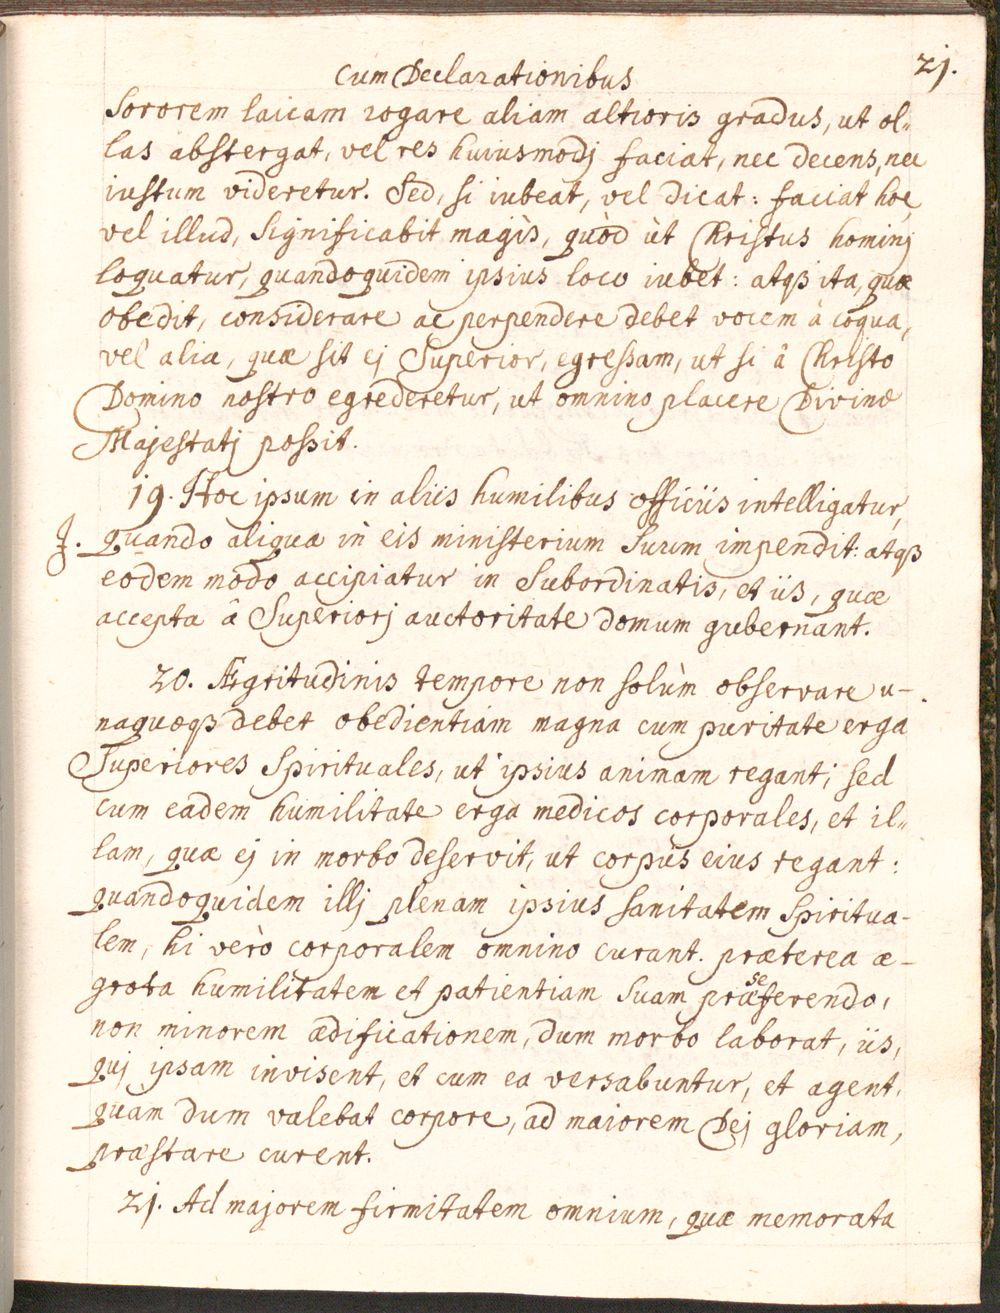 Cum Declarationibus
21.
Sororem laicam rogare aliam altioris gradus, ut ol„
las abstergat, vel res huiusmodj faciat, nec decens, nec
iustum videretur. Sed, si iubeat, vel dicat: faciat hoc,
vel illud, significabit magis, quòd ùt Christus hominj
loquatur, quandoquidem ipsius loco iubet: atqß ita, quæ
obedit, considerare ac perpendere debet vocem à coqua,
vel alia, quæ sit ej Superior, egressam, ut si â Christo
Domino nostro egrederetur, ut omnino placere Divinæ
Majestatj possit.
19. Hoc ipsum in aliis humilibus officiis intelligatur,
J. quando aliqua in eis ministerium suum impendit: atqß
eodem modo accipiatur in Subordinatis, et iis, quæ
accepta â Superiorj auctoritate domum gubernant.
20. Ægritudinis tempore non solùm observare u-
naquæqß debet obedientiam magna cum puritate erga
Superiores Spirituales, ut ipsius animam regant; sed
cum eadem humilitate erga medicos corporales, et il„
lam, quæ ej in morbo deservit, ut corpus eius regant:
quandoquidem illj plenam ipsius sanitatem Spiritua-
lem, hi verò corporalem omnino curant. præterea æ-
grota humilitatem et patientiam suam præ se ferendo,
non minorem ædificationem, dum morbo laborat, iis,
quj ipsam invisent, et cum ea versabuntur, et agent,
quam dum valebat corpore, ad maiorem Dej gloriam,
præstare curent.
21. Ad majorem firmitatem omnium, quæ memorata